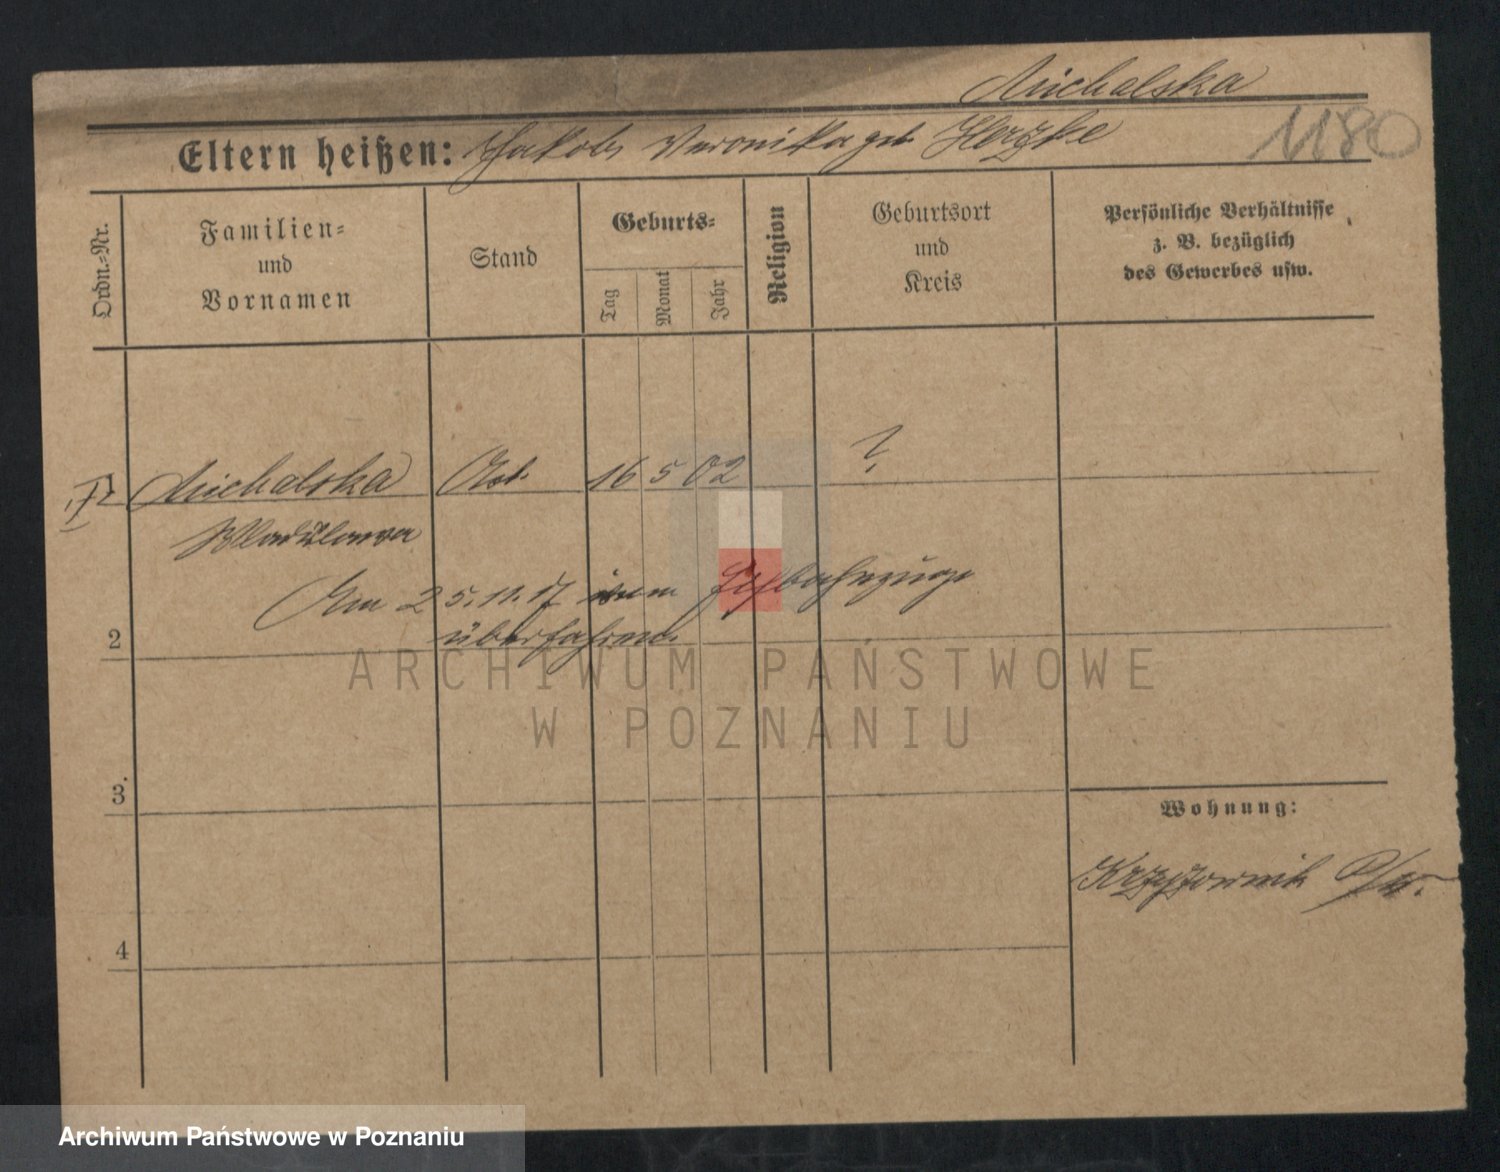 Michalska
Eltern heißen: Jakob Veronika geb. Herzke
1180
Ordn.-Nr.
Familien-
und
Vornamen
Stand
Geburts-
Tag
Monat
Jahr
Religion
Geburtsort
und
Kreis
Persönliche Verhältnisse
z. B. bezüglich
des Gewerbes usw.
Michalska
16 5 02 ?
Wladislawa
Am 25.11.17 vom
überfahren.
2
3.
4
Wohnung:
ARCHIWUM PAŃSTWOWE
W POZNANIU
Archiwum Państwowe w Poznaniu